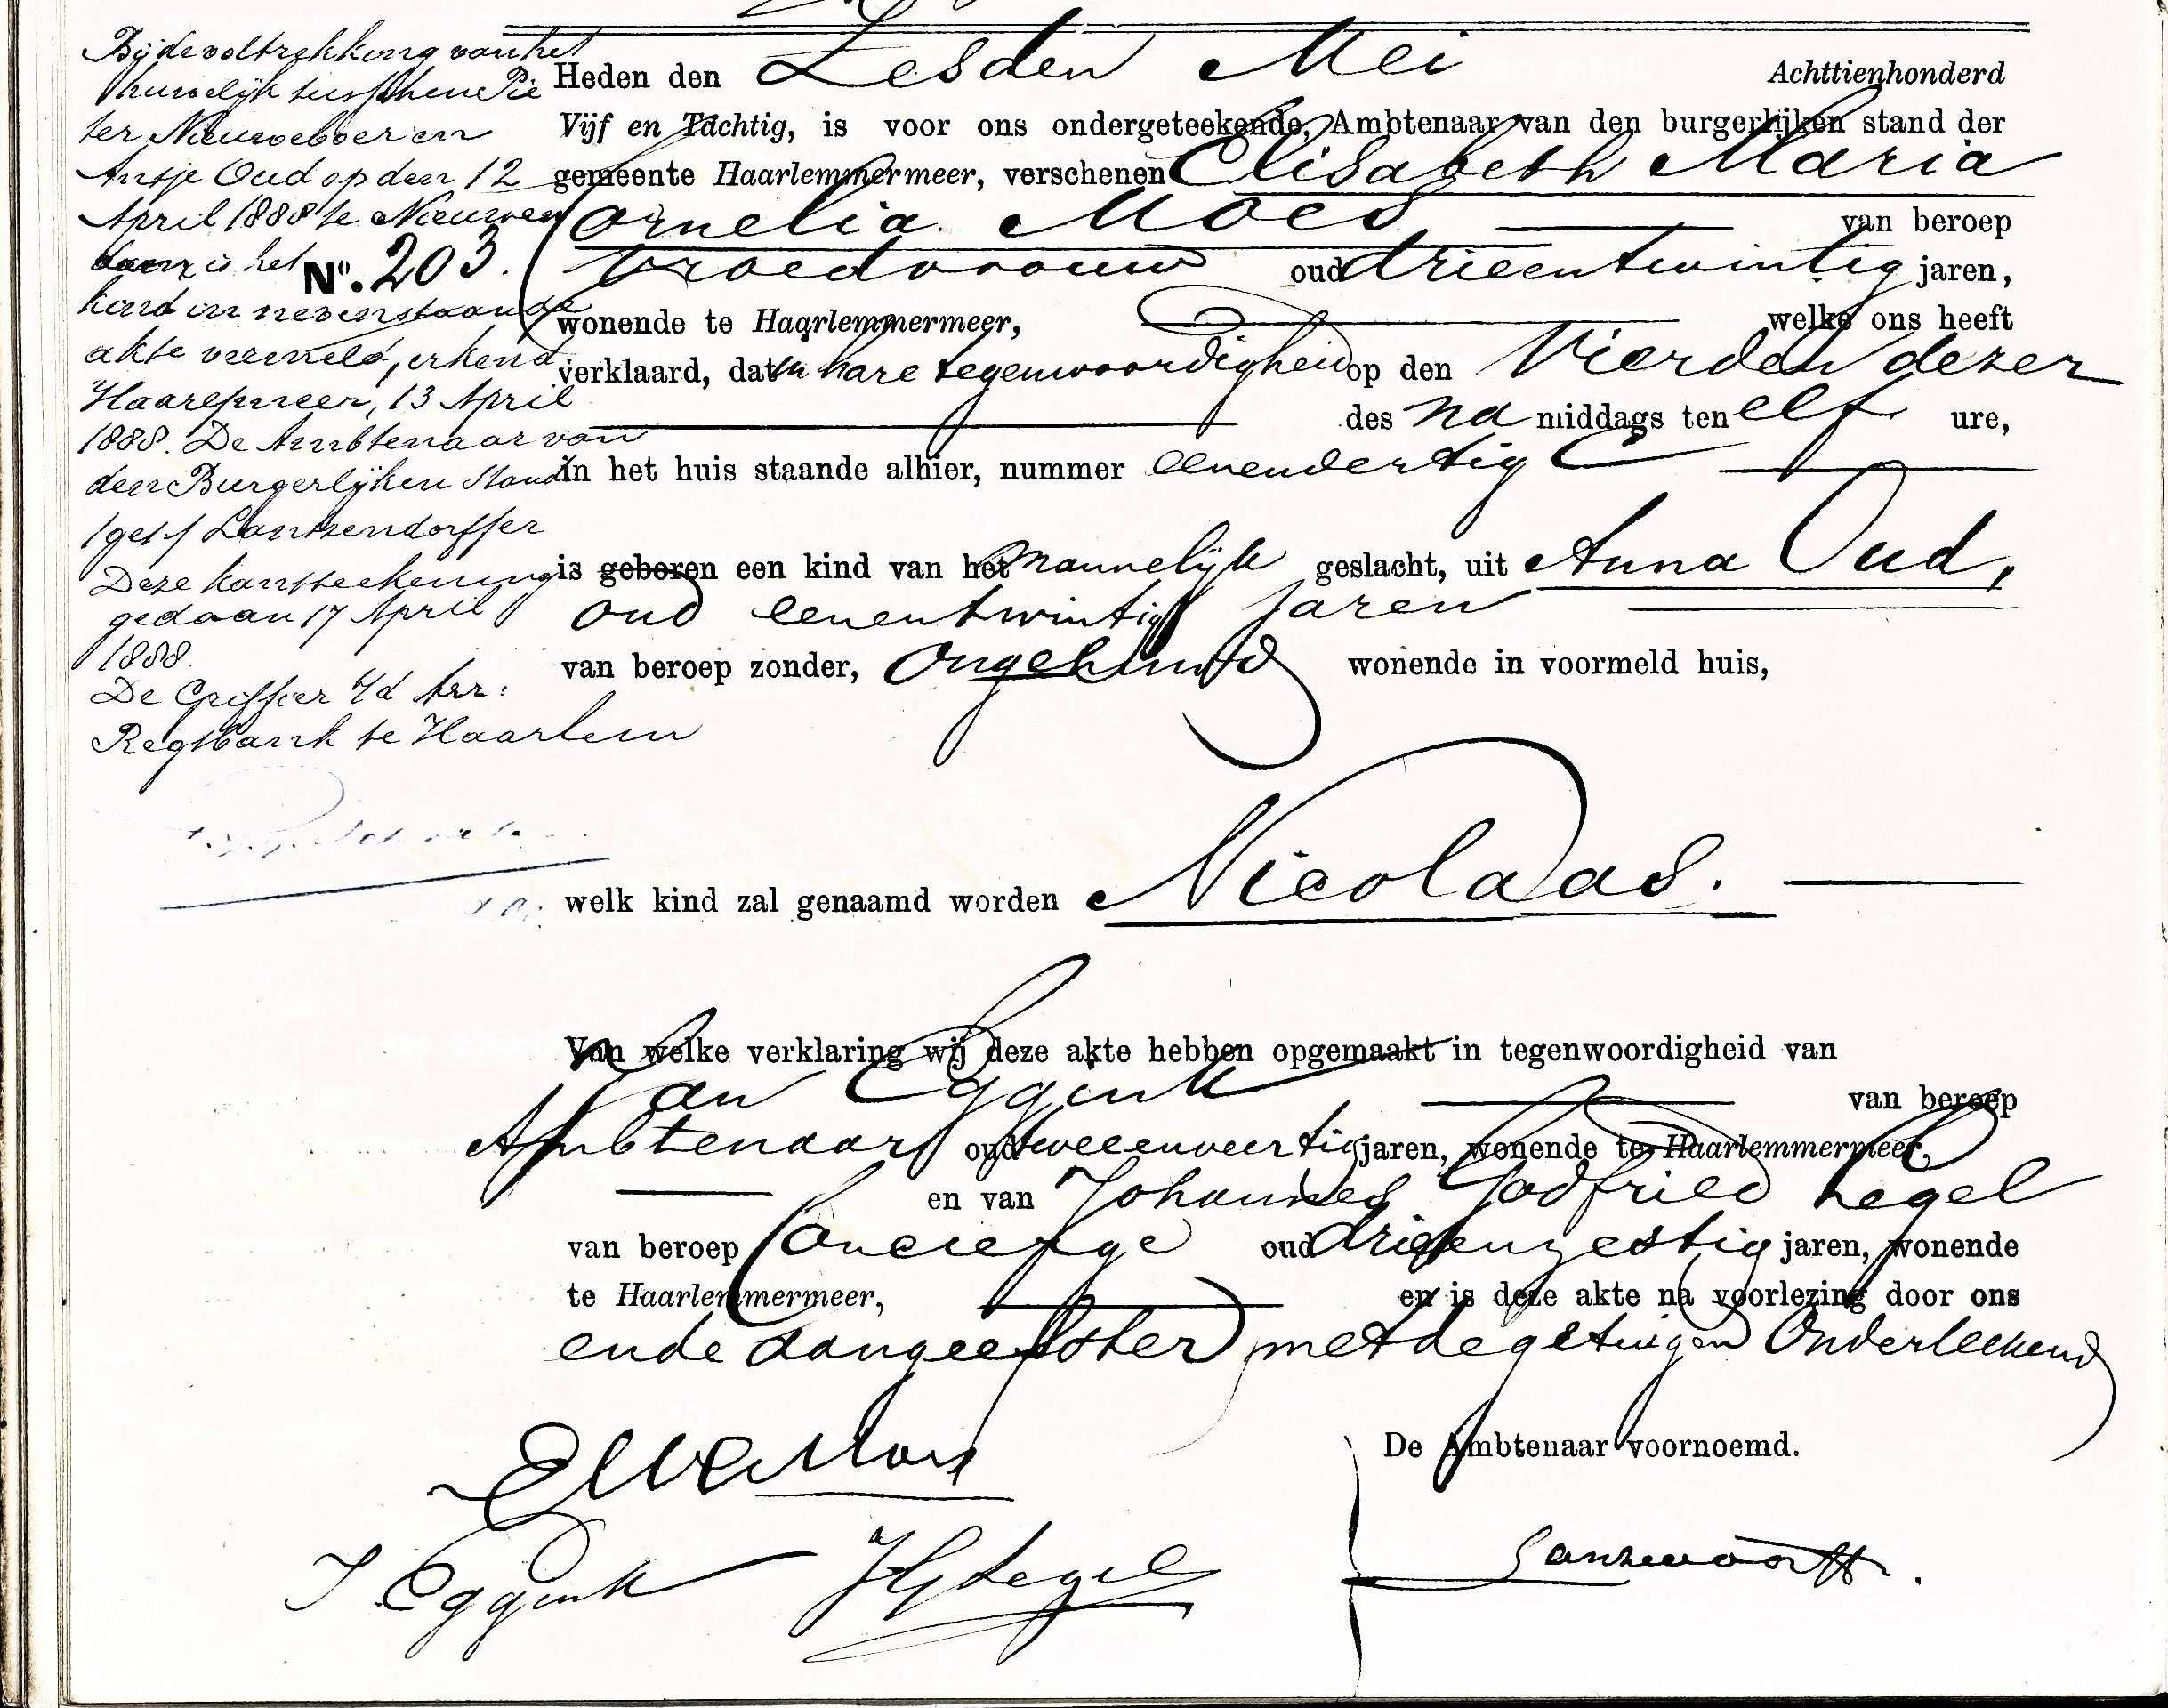 Bij de voltrekking van het
huwelijk tusschen Pie
ter Nieuweboer en
Antje Oud op den 12
April 1888 te Nieuwen
is het
kind in nevenstaande
akte vermeld, erkend
Haarlpmeer, 13 April
1888. De Ambtenaar van
den Burgerlijken Stand
/get/ Lantzendorffer
Deze kantteekening
gedaan 17 April
1888.
De Griffier v/d Arr:
Regtbank te Haarlem
No. 203.
Heden den Zesden Mei Achttienhonderd
Vijf en Tachtig, is voor ons ondergeteekende, Ambtenaar van den burgerlijken stand der
gemeente Haarlemmermeer, verschenen Elisabeth Maria
Cornelia Moes van beroep
vroedvrouw oud drieentwintig jaren,
wonende te Haarlemmermeer, welke ons heeft
verklaard, dat in hare tegenwoordigheid op den Vierden dezer
des na middags ten elf ure,
in het huis staande alhier, nummer eenendertig C
is geboren een kind van het mannelijk geslacht, uit Anna Oud,
oud eenentwintig jaren
van beroep zonder, ongehuwd wonende in voormeld huis,
welk kind zal genaamd worden Nicolaas.
Van welke verklaring wij deze akte hebben opgemaakt in tegenwoordigheid van
Jan Eggink van beroep
Ambtenaar oud tweeenveertig jaren, wonende te Haarlemmermeer,
en van Johannes Godfried Legel
van beroep Concierge oud drieenzestig jaren, wonende
te Haarlemmermeer, en is deze akte na voorlezing door ons
ende aangeefster met de getuigen Onderteekend
De Ambtenaar voornoemd.
EMC Moes
J Eggink JG Legel